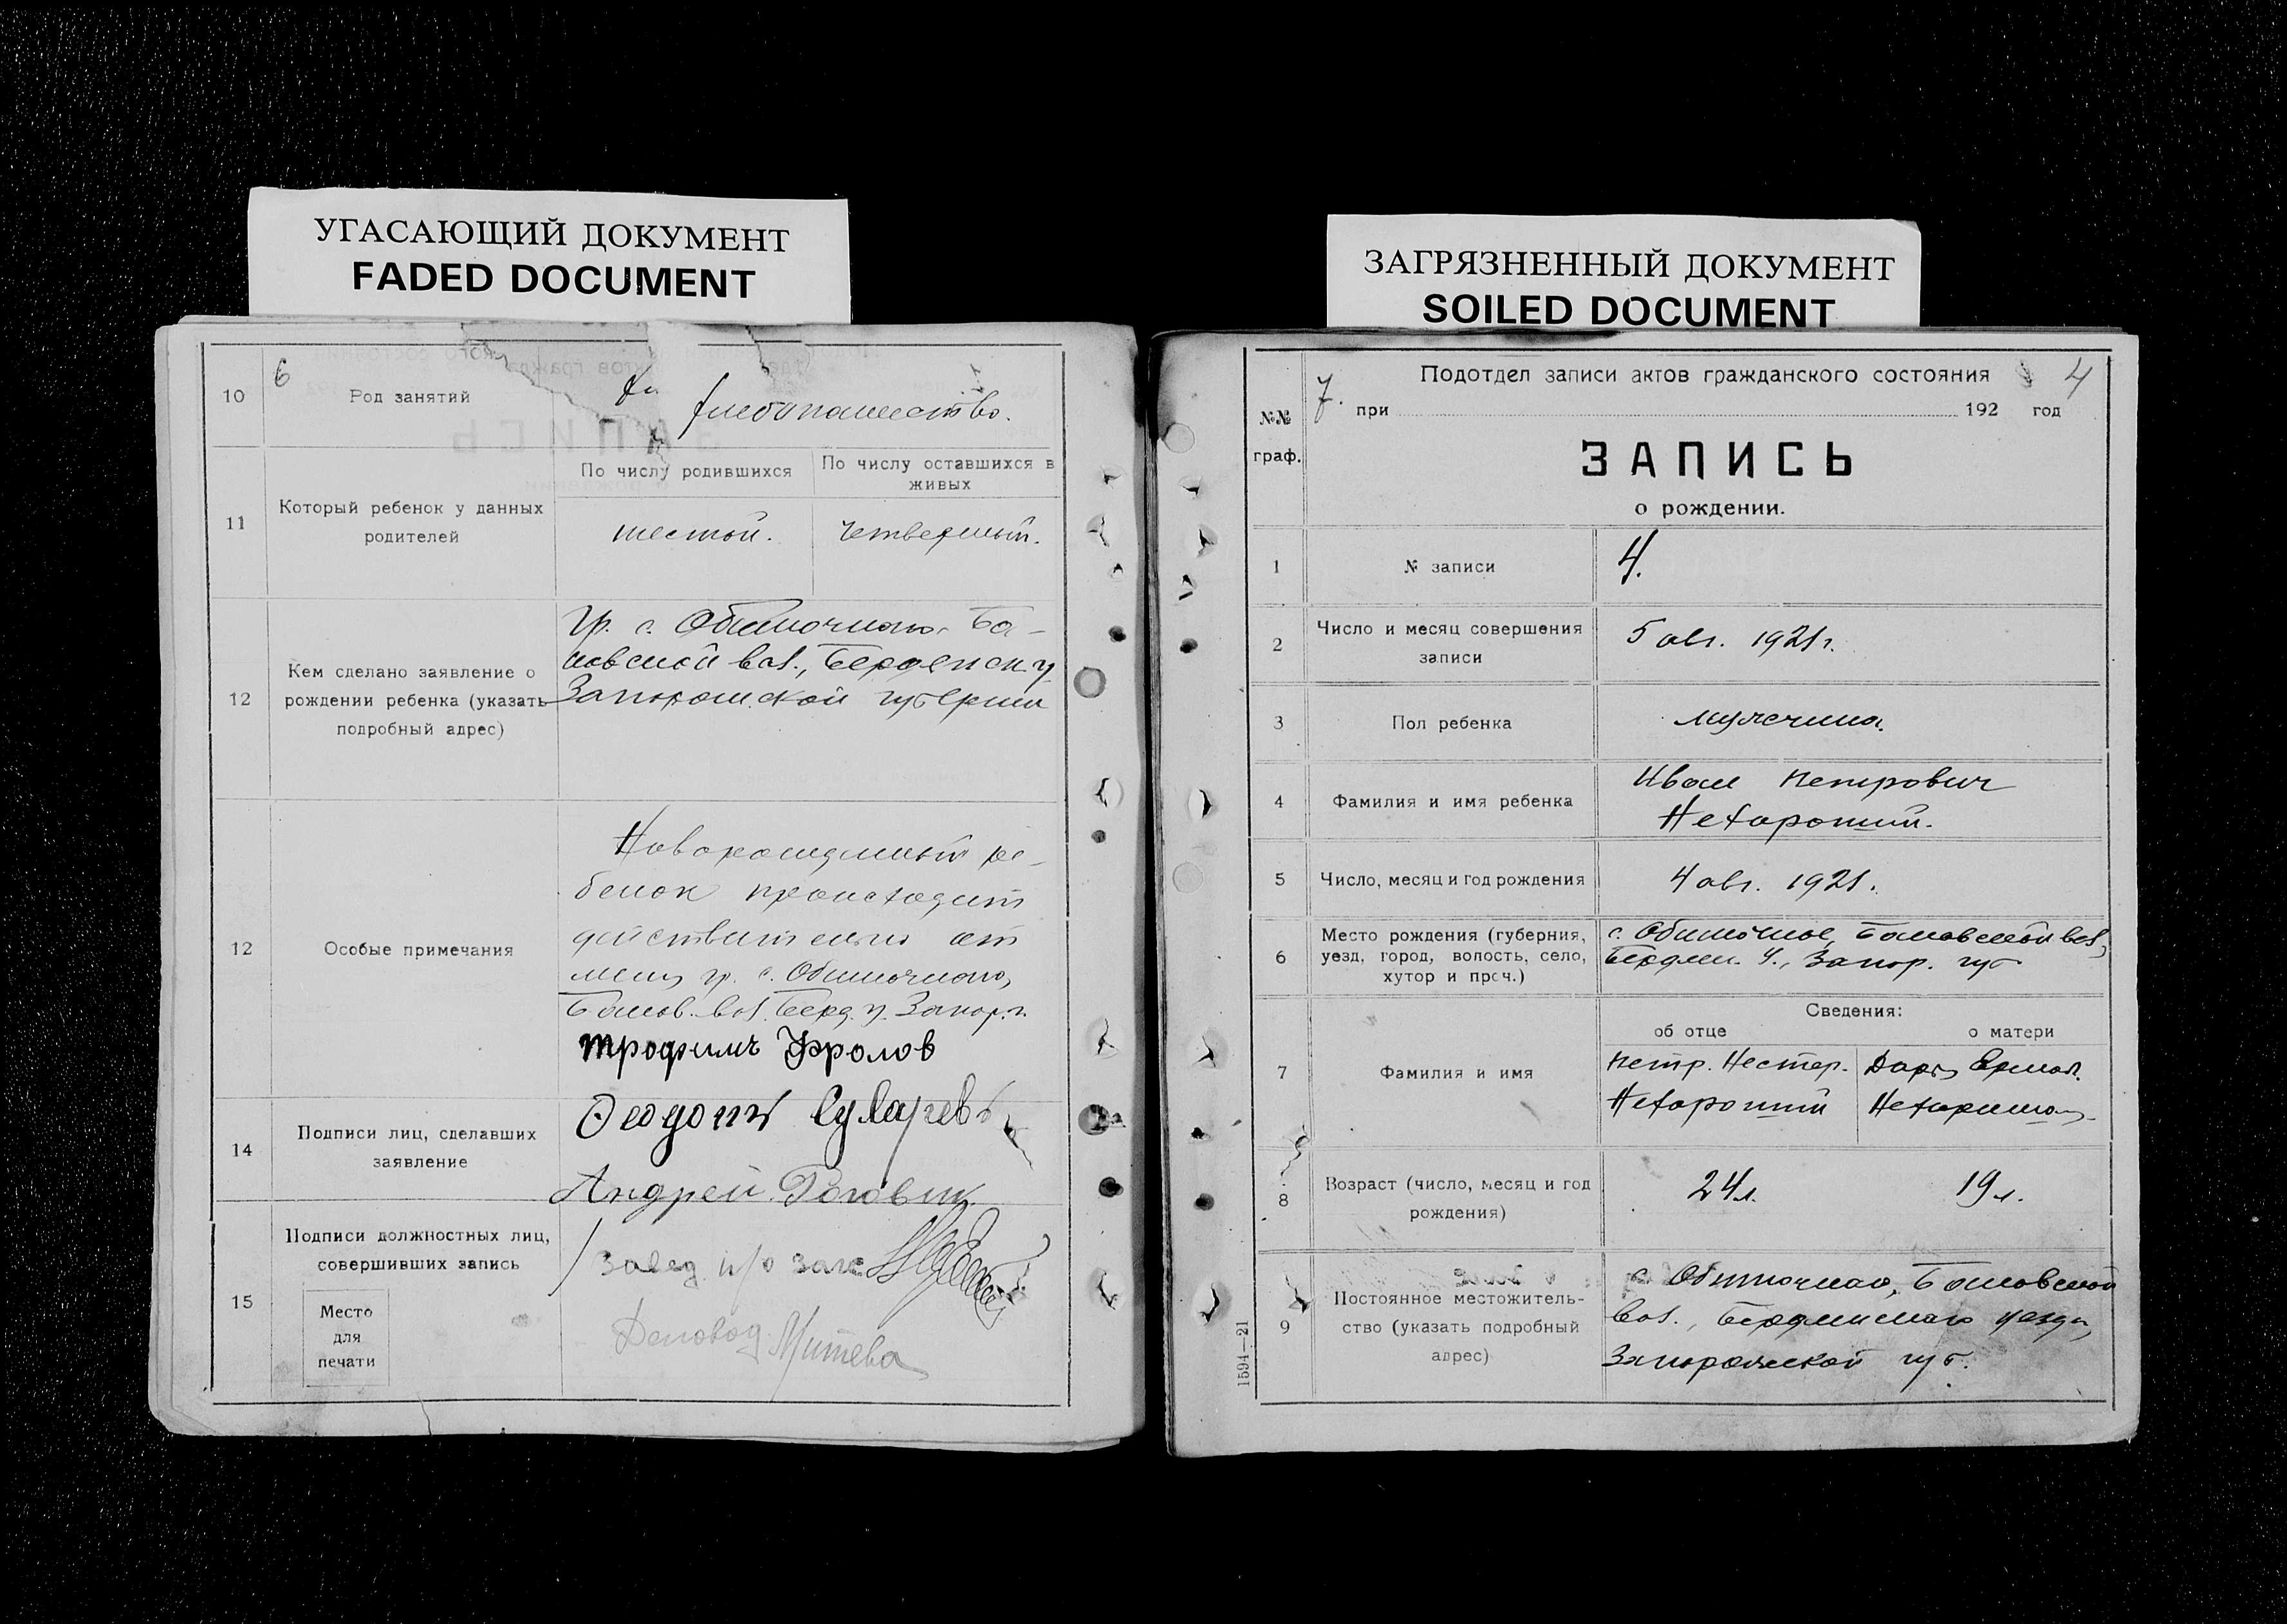 УГАСАЮЩИЙ ДОКУМЕНТ
FADED DOCUMENT
6
10
Род занятий
хлебопашество.
11
Который ребенок у данных
родителей
По числу родившихся
По числу оставшихся в
живых
шестой.
четвертый.
12
Кем сделано заявление о
рождении ребенка (указать
подробный адрес)
Гр. с. Обиточного, Ба-
новской вол., Бердянск. у
Запорожской губернии
12
Особые примечания
Новорожденный ре-
бенок происходит
действительно от
гр. с. Обиточного,
Банов. вол. Берд. у. Запор. г.
Трофимъ Фролов
14
Подписи лиц, сделавших
заявление
Феодотъ Сухаревъ
Андрей Роговик
15
Подписи должностных лиц,
совершивших запись
Место
для
печати
Завед. п/о загс
Деловод. Митева
ЗАГРЯЗНЕННЫЙ ДОКУМЕНТ
SOILED DOCUMENT
№№
граф.
7.
4
Подотдел записи актов гражданского состояния
при 192 год
ЗАПИСЬ
о рождении.
1
№ записи
4.
2
Число и месяц совершения
записи
5 авг. 1921 г.
3
Пол ребенка
мужчина.
4
Фамилия и имя ребенка
Иван Петрович
Нехороший.
5
Число, месяц и год рождения
4 авг. 1921.
6
Место рождения (губерния,
уезд, город, волость, село,
хутор и проч.)
с. Обиточное, Бановской вол,
Бердян. у., Запор. губ
7
Фамилия и имя
Сведения:
об отце
о матери
Петр. Нестер.
Нехороший
Дарья Ермол.
Нехорошая
8
Возраст (число, месяц и год
рождения)
24 л.
19 л.
9
Постоянное местожитель-
ство (указать подробный
адрес)
с. Обиточная, Бановской
вол., Бердянскаго уезда,
Запорожской губ.
1594—21